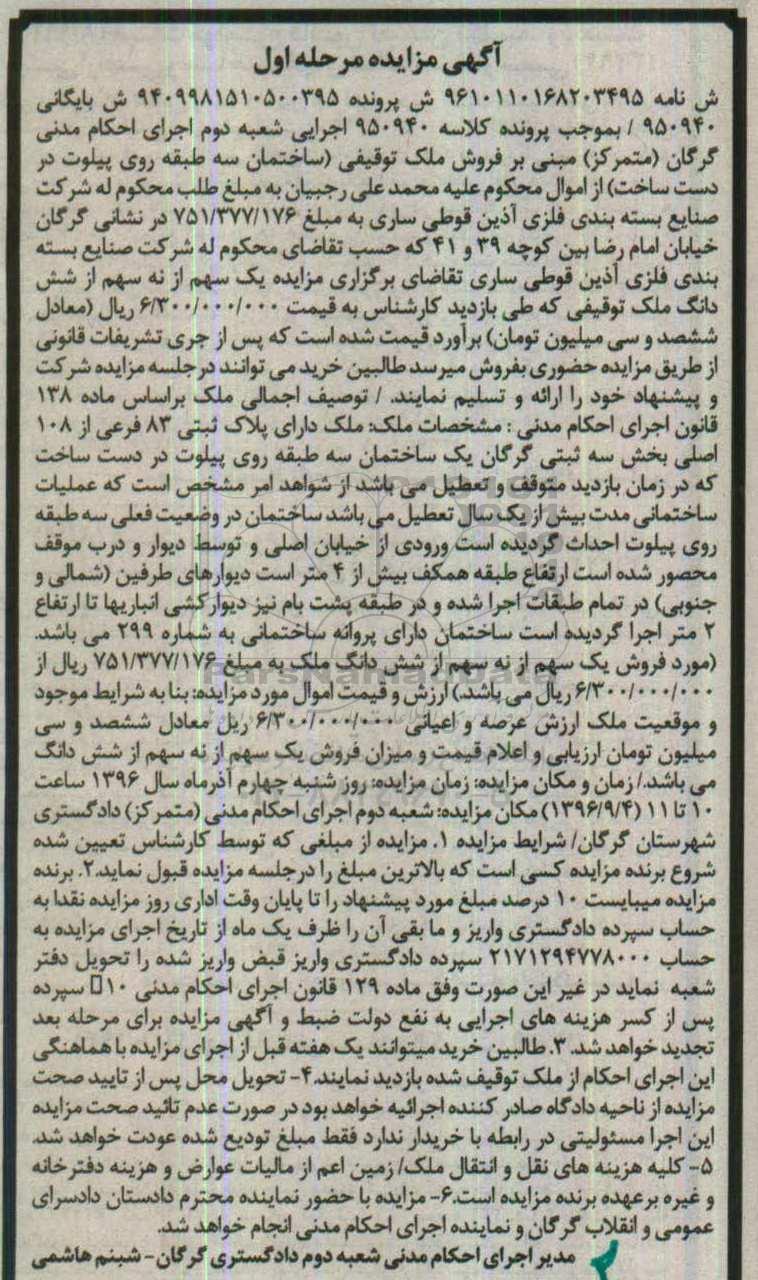 آگهی مزایده مرحله اول
ش نامه ۹۶۱۰۱۱۰۱۶۸۲۰۳۴۹۵ ش پرونده ۹۴۰۹۹۸۱۵۱۰۵۰۰۳۹۵ ش بایگانی
۹۵۰۹۴۰ / بموجب پرونده کلاسه ۹۵۰۹۴۰ اجرایی شعبه دوم اجرای احکام مدنی
گرگان (متمرکز) مبنی بر فروش ملک توقیفی (ساختمان سه طبقه روی پیلوت در
دست ساخت) از اموال محکوم علیه محمد علی رجبیان به مبلغ طلب محکوم له شرکت
صنایع بسته بندی فلزی آذین قوطی ساری به مبلغ ۷۵۱/۳۷۷/۱۷۶ در نشانی گرگان
خیابان امام رضا بین کوچه ۳۹ و ۴۱ که حسب تقاضای محکوم له شرکت صنایع بسته
بندی فلزی آذین قوطی ساری تقاضای برگزاری مزایده یک سهم از نه سهم از شش
دانگ ملک توقیفی که طی بازدید کارشناس به قیمت ۶/۳۰۰/۰۰۰/۰۰۰ ریال (معادل
ششصد و سی میلیون تومان) برآورد قیمت شده است که پس از جری تشریفات قانونی
از طریق مزایده حضوری بفروش میرسد طالبین خرید می توانند درجلسه مزایده شرکت
و پیشنهاد خود را ارائه و تسلیم نمایند. / توصیف اجمالی ملک براساس ماده ۱۳۸
قانون اجرای احکام مدنی : مشخصات ملک: ملک دارای پلاک ثبتی ۸۳ فرعی از ۱۰۸
اصلی بخش سه ثبتی گرگان یک ساختمان سه طبقه روی پیلوت در دست ساخت
که در زمان بازدید متوقف و تعطیل می باشد از شواهد امر مشخص است که عملیات
ساختمانی مدت بیش از یک سال تعطیل می باشد ساختمان در وضعیت فعلی سه طبقه
روی پیلوت احداث گردیده است ورودی از خیابان اصلی و توسط دیوار و درب موقف
محصور شده است ارتفاع طبقه همکف بیش از ۴ متر است دیوارهای طرفین (شمالی و
جنوبی) در تمام طبقات اجرا شده و در طبقه پشت بام نیز دیوارکشی انباریها تا ارتفاع
۲ متر اجرا گردیده است ساختمان دارای پروانه ساختمانی به شماره ۲۹۹ می باشد.
(مورد فروش یک سهم از نه سهم از شش دانگ ملک به مبلغ ۷۵۱/۳۷۷/۱۷۶ ریال از
۶/۳۰۰/۰۰۰/۰۰۰ ریال می باشد.) ارزش و قیمت اموال مورد مزایده: بنا به شرایط موجود
و موقعیت ملک ارزش عرصه و اعیانی ۶/۳۰۰/۰۰۰/۰۰۰ ریل معادل ششصد و سی
میلیون تومان ارزیابی و اعلام قیمت و میزان فروش یک سهم از نه سهم از شش دانگ
می باشد./ زمان و مکان مزایده: زمان مزایده: روز شنبه چهارم آذرماه سال ۱۳۹۶ ساعت
۱۰ تا ۱۱ (۱۳۹۶/۹/۴) مکان مزایده: شعبه دوم اجرای احکام مدنی (متمرکز) دادگستری
شهرستان گرگان/ شرایط مزایده ۱. مزایده از مبلغی که توسط کارشناس تعیین شده
شروع برنده مزایده کسی است که بالاترین مبلغ را درجلسه مزایده قبول نماید.۲. برنده
مزایده میبایست ۱۰ درصد مبلغ مورد پیشنهاد را تا پایان وقت اداری روز مزایده نقدا به
حساب سپرده دادگستری واریز و ما بقی آن را ظرف یک ماه از تاریخ اجرای مزایده به
حساب ۲۱۷۱۲۹۴۷۷۸۰۰۰ سپرده دادگستری واریز قبض واریز شده را تحویل دفتر
شعبه نماید در غیر این صورت وفق ماده ۱۲۹ قانون اجرای احکام مدنی ۱۰▯ سپرده
پس از کسر هزینه های اجرایی به نفع دولت ضبط و آگهی مزایده برای مرحله بعد
تجدید خواهد شد. ۳. طالبین خرید میتوانند یک هفته قبل از اجرای مزایده با هماهنگی
این اجرای احکام از ملک توقیف شده بازدید نمایند.۴- تحویل محل پس از تایید صحت
مزایده از ناحیه دادگاه صادر کننده اجرائیه خواهد بود در صورت عدم تائید صحت مزایده
این اجرا مسئولیتی در رابطه با خریدار ندارد فقط مبلغ تودیع شده عودت خواهد شد.
۵- کلیه هزینه های نقل و انتقال ملک/ زمین اعم از مالیات عوارض و هزینه دفترخانه
و غیره برعهده برنده مزایده است.۶- مزایده با حضور نماینده محترم دادستان دادسرای
عمومی و انقلاب گرگان و نماینده اجرای احکام مدنی انجام خواهد شد.
مدیر اجرای احکام مدنی شعبه دوم دادگستری گرگان- شبنم هاشمی
ParsNamadData